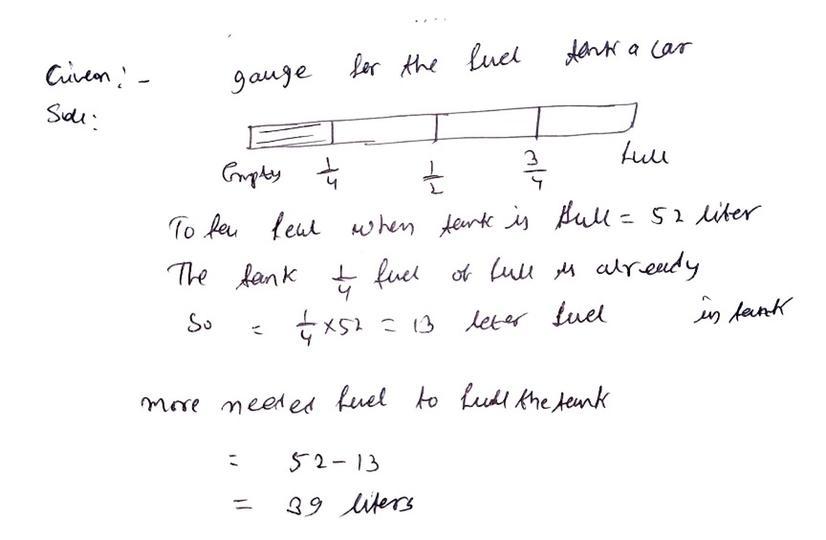 Given:- gauge for the fuel tank a car
Sol:
Empty 1/4 1/2 3/4 full
fuel when tank is full = 52 liter
The tank 1/4 fuel of full is already
So = 1/4 × 52 = 13 leter fuel in tank
more needed fuel to full the tank
= 52 - 13
= 39 liters